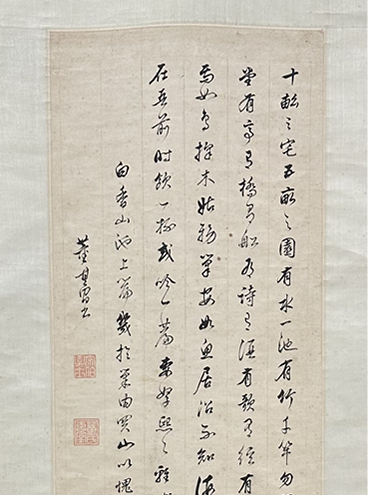 十畝之宅五畝之園有水一池有竹千竿勿
堂有亭有橋有船有詩有酒有歌有絃有
焉如鳥擇木姑務巢安如魚居沼不知海
在吾前時飲一杯或吟一篇妻孥熙熙雞
白香山池上篇幾於巢由買山以愧
董其昌書